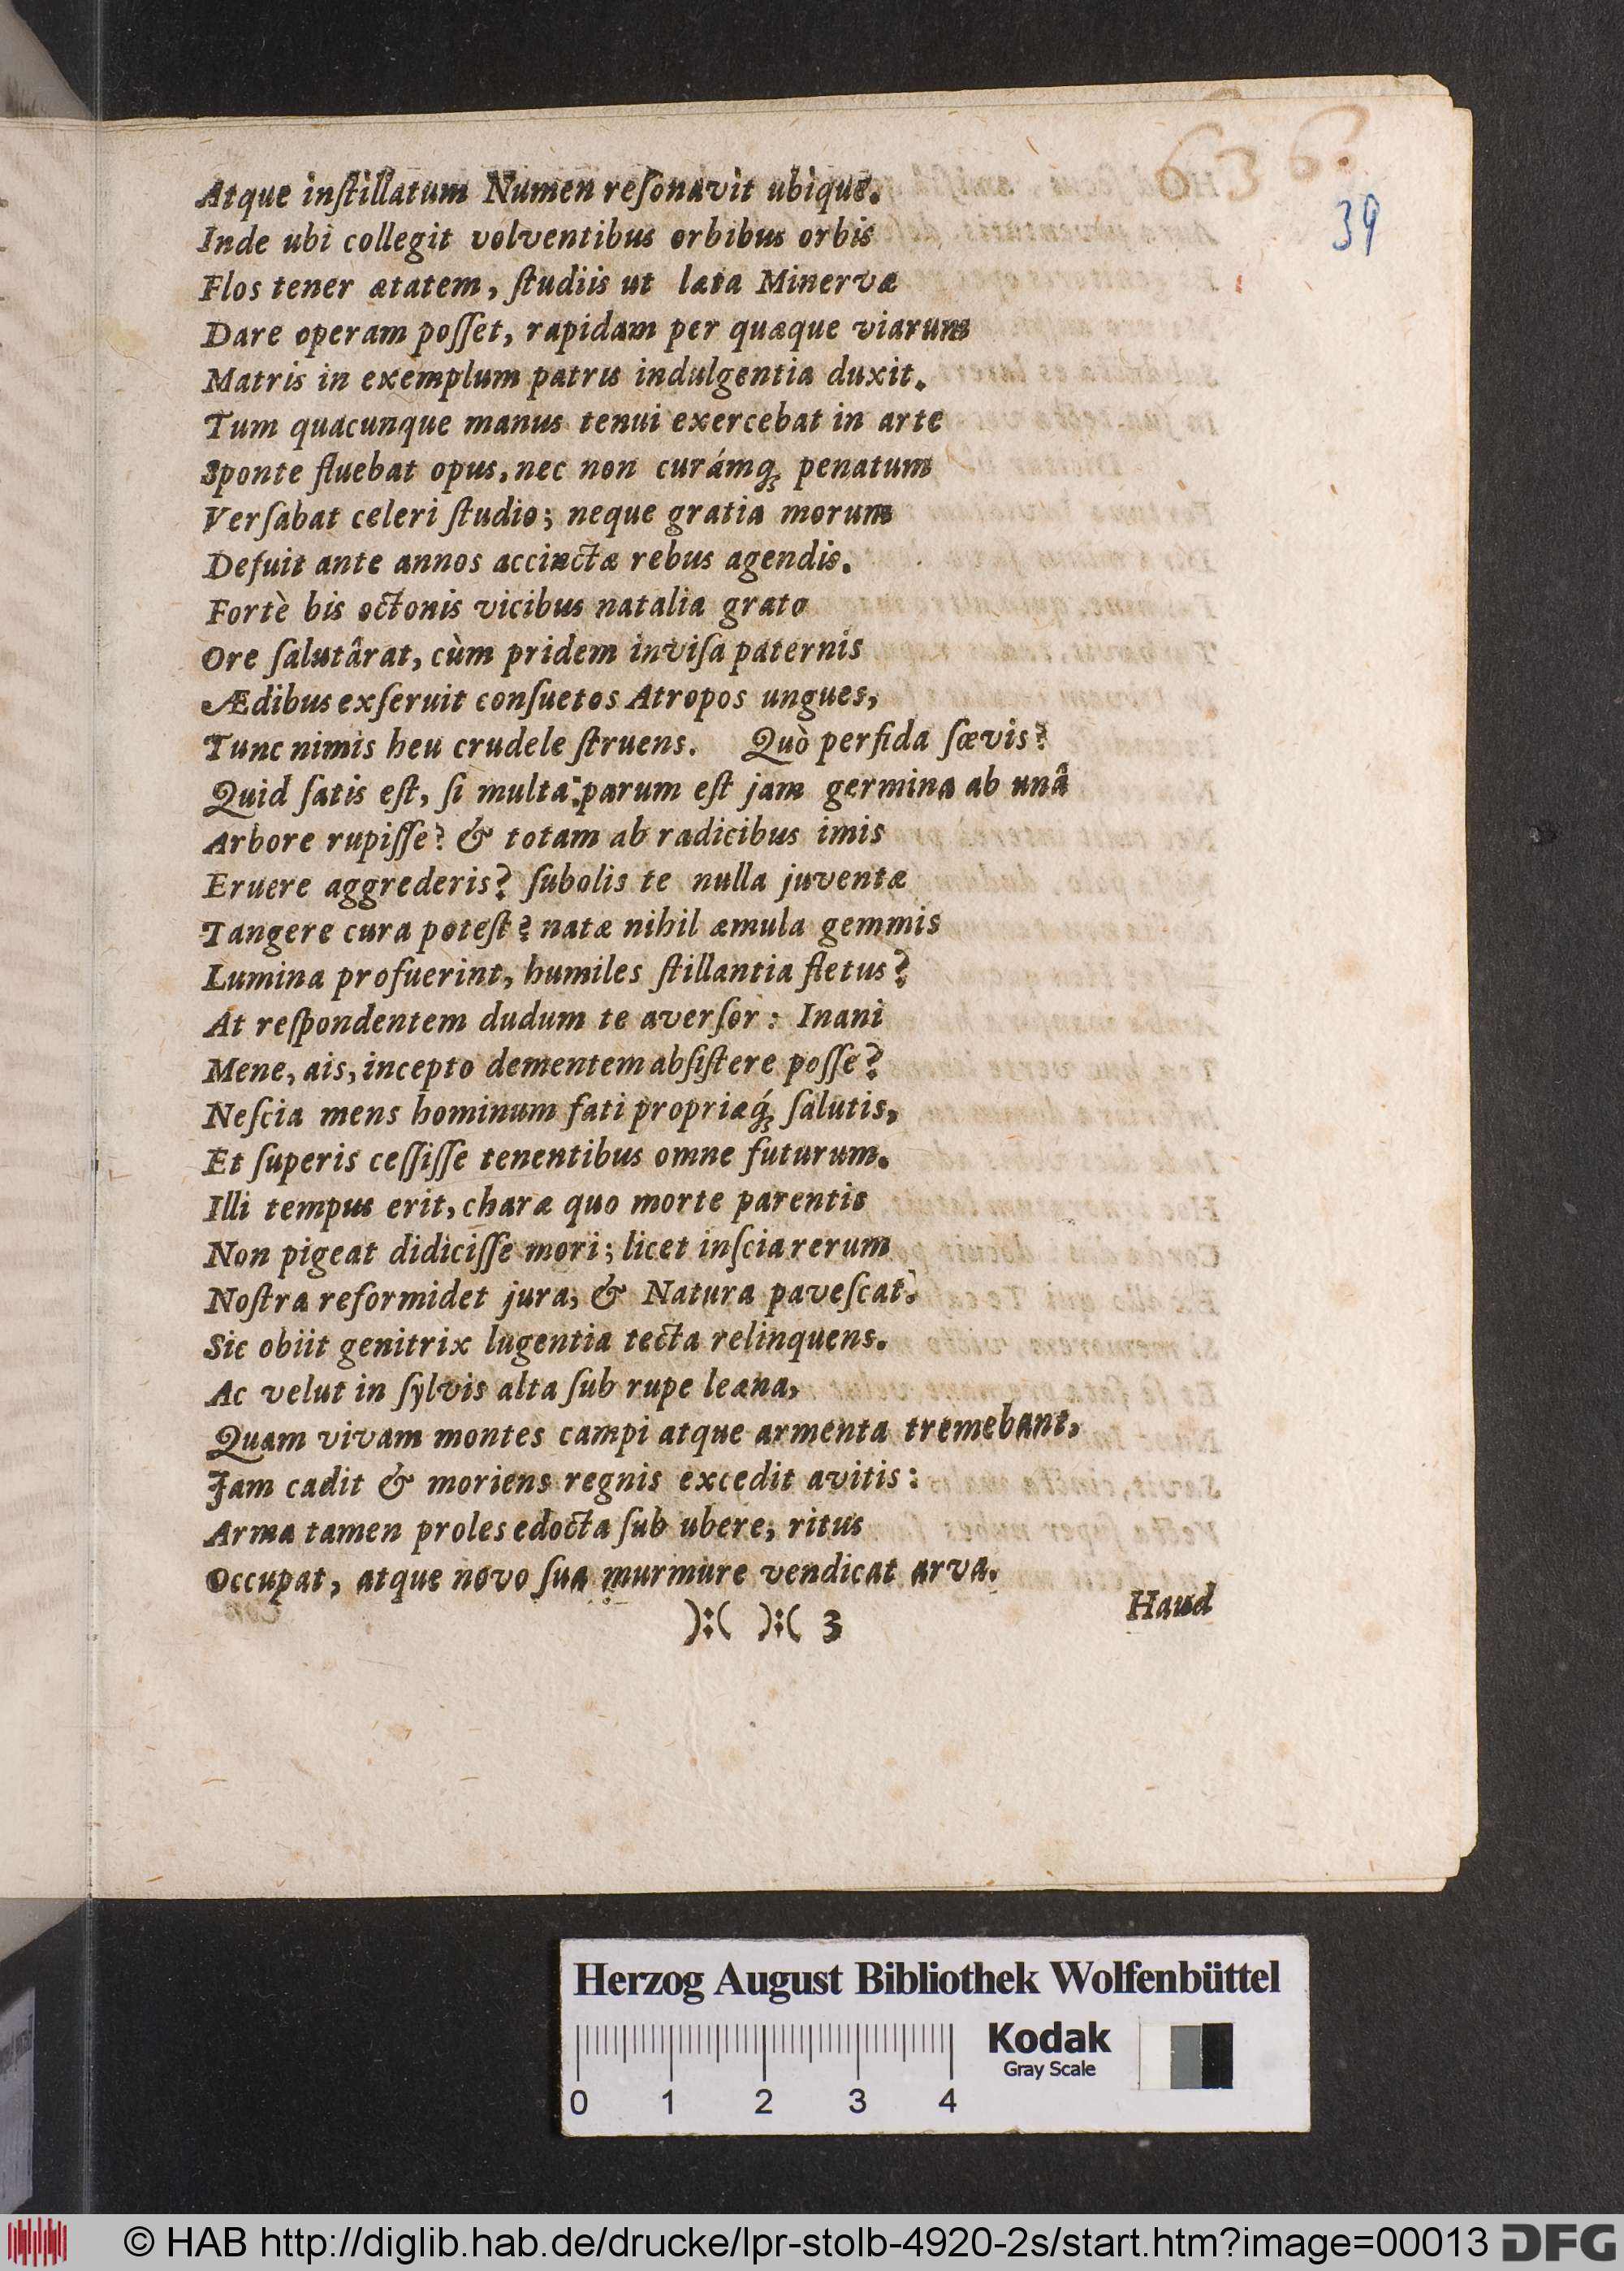 636.
39
Atque inſtillatum Numen reſonavit ubique.
Inde ubi collegit volventibus orbibus orbis
Flos tener ætatem, ſtudiis ut læta Minervæ
Dare operam poſſet, rapidam per quæque viarum
Matris in exemplum patris indulgentia duxit.
Tum quacunque manus tenui exercebat in arte
Sponte fluebat opus, nec non curámq́; penatum
Verſabat celeri ſtudio; neque gratia morum
Defuit ante annos accinctæ rebus agendis.
Fortè bis octonis vicibus natalia grato
Ore ſalutârat, cùm pridem inviſa paternis
Ædibus exſeruit conſuetos Atropos ungues,
Tunc nimis heu crudele ſtruens. Quò perfida ſœvis?
Quid ſatis eſt, ſi multa: parum eſt jam germina ab unâ
Arbore rupiſſe? & totam ab radicibus imis
Eruere aggrederis? ſubolis te nulla juventæ
Tangere cura poteſt? natæ nihil æmula gemmis
Lumina profuerint, humiles ſtillantia fletus?
At reſpondentem dudum te averſor: Inani
Mene, ais, incepto dementem abſiſtere poſſe?
Neſcia mens hominum fati propriæq́; ſalutis,
Et ſuperis ceſſiſſe tenentibus omne futurum.
Illi tempus erit, charæ quo morte parentis
Non pigeat didiciſſe mori; licet inſcia rerum
Noſtra reformidet jura, & Natura paveſcat.
Sic obiit genitrix lugentia tecta relinquens.
Ac velut in ſylvis alta ſub rupe leæna,
Quam vivam montes campi atque armenta tremebant,
Jam cadit & moriens regnis excedit avitis:
Arma tamen proles edocta ſub ubere, ritus
Occupat, atque novo ſua murmure vendicat arva.
):( ):( 3
Haud
Herzog August Bibliothek Wolfenbüttel
Kodak
Gray Scale
0 1 2 3 4
© HAB http://diglib.hab.de/drucke/lpr-stolb-4920-2s/start.htm?image=00013 DFG